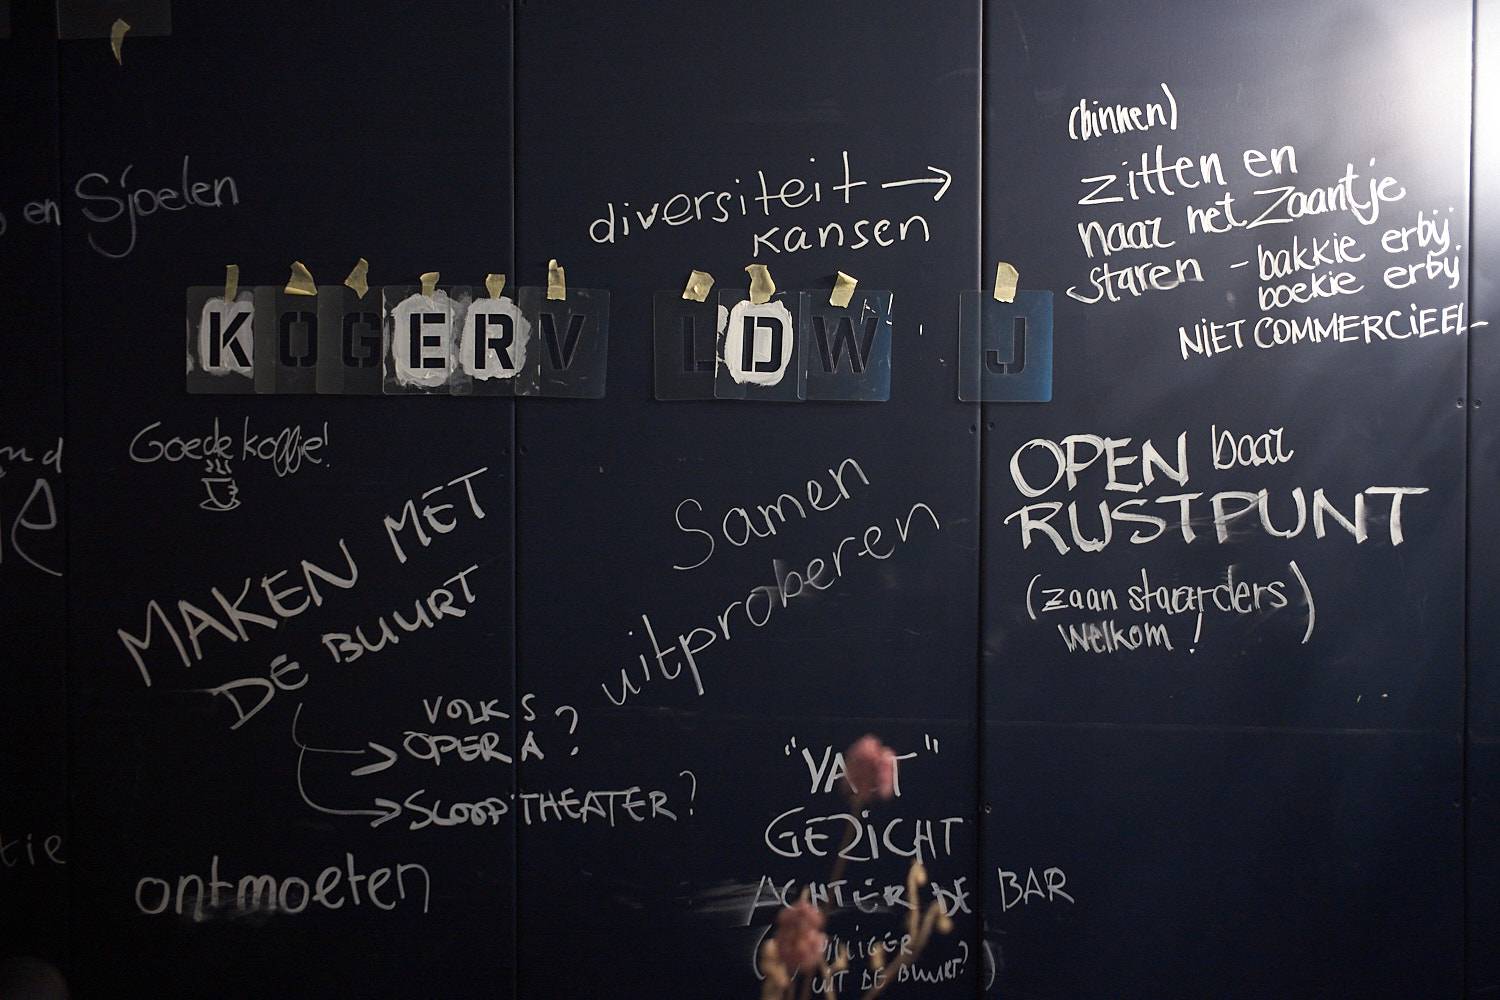 en Sjoelen
diversiteit →
kansen
(binnen)
zitten en
naar het Zaantje
staren - bakkie erbij
boekie erbij
NIET COMMERCIEEL
K O G E R V L D W J
Goede koffie!
MAKEN MET
DE BUURT
→ VOLKS
OPERA?
→ SLOOP THEATER?
ontmoeten
Samen
uitproberen
OPENbaar
RUSTPUNT
(zaan staarders
Welkom!)
GEZICHT
ACHTER DE BAR
UIT DE BUURT?)